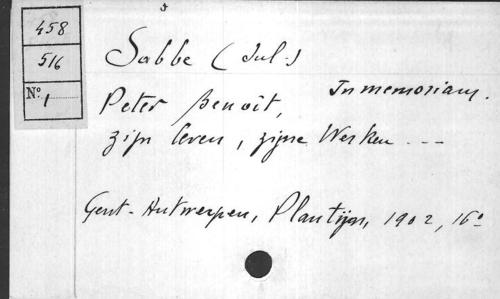 458
516
N° 1
Sabbe (Jul.)
In memoriam.
Peter Benoit,
zijn leven, zijne Werken ---
Gent-Antwerpen, Plantijn, 1902, 16°